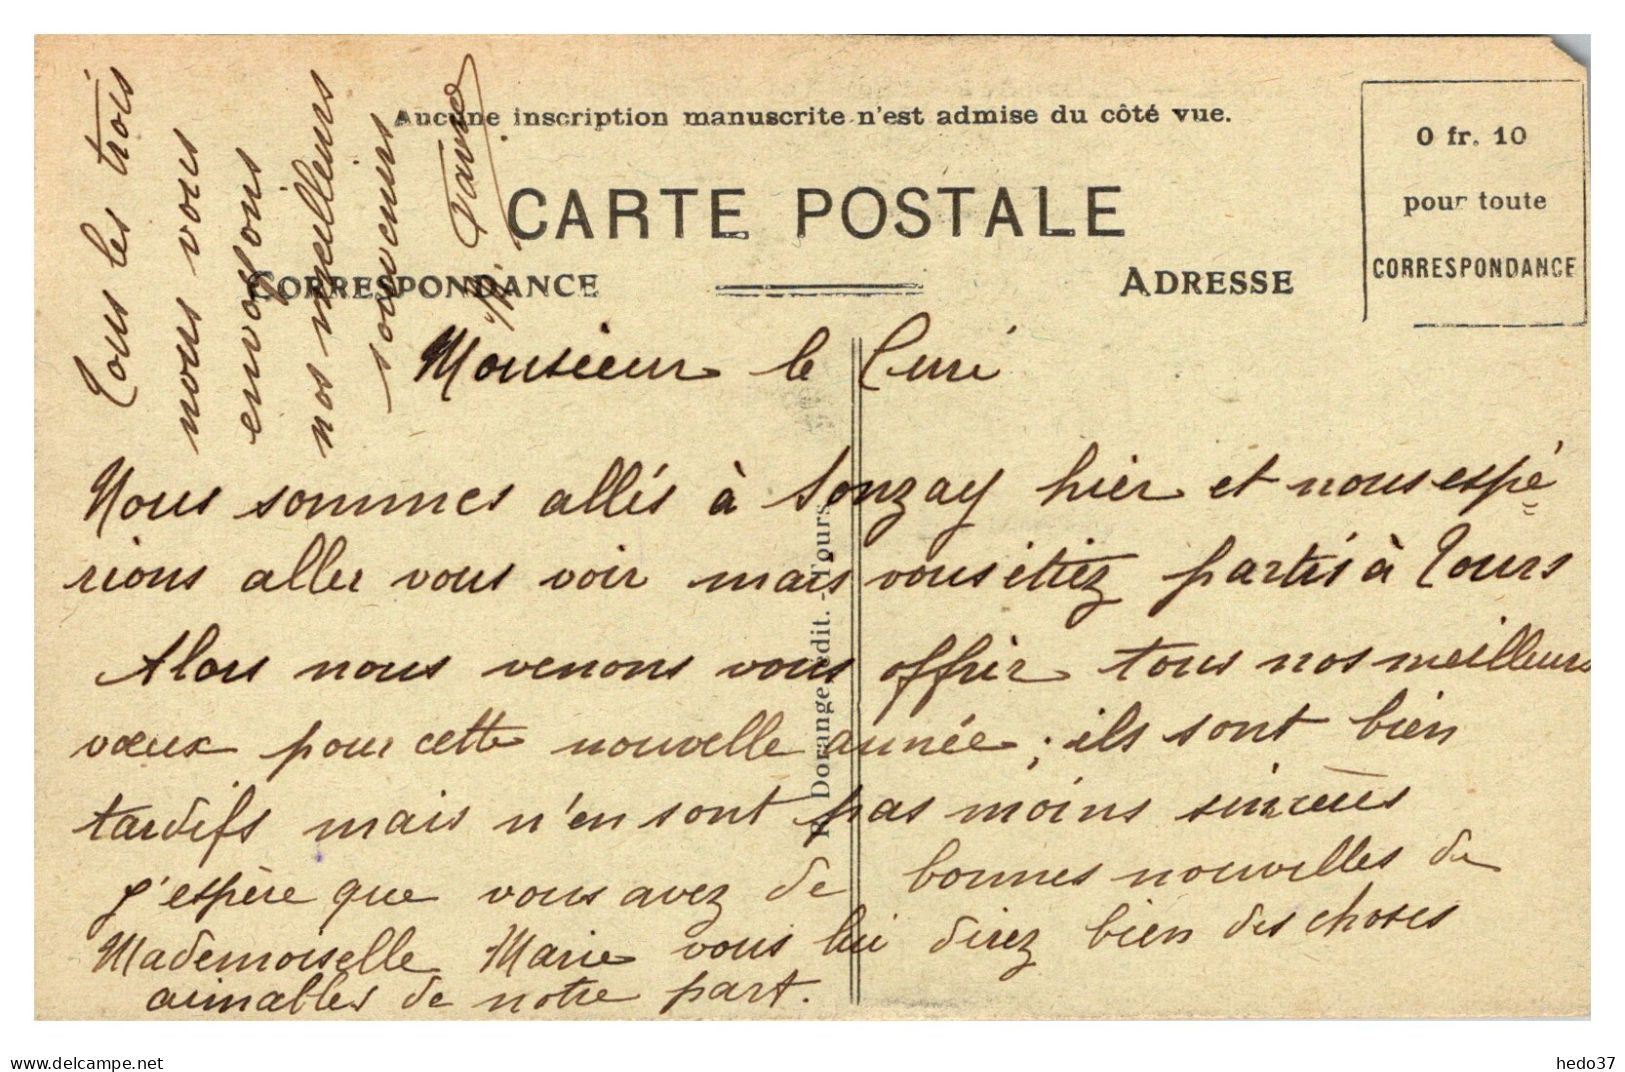 Aucune inscription manuscrite n'est admise du côté vue.
CARTE POSTALE
CORRESPONDANCE
ADRESSE
0 fr. 10
pour toute
CORRESPONDANCE
Monsieur le Curé
Nous sommes allés à Sonzay hier et nous espé
rions aller vous voir mais vous étiez partis à Tours
Alors nous venons vous offrir tous nos meilleurs
vœux pour cette nouvelle année ; ils sont bien
tardifs mais n'en sont pas moins sincères
J'espère que vous avez de bonnes nouvelles de
Mademoiselle Marie vous lui direz bien des choses
aimables de notre part.
Tous les trois
nous vous
envoyons
nos meilleurs
souvenirs
Dorange édit. - Tours
hedo37
www.delcampe.net